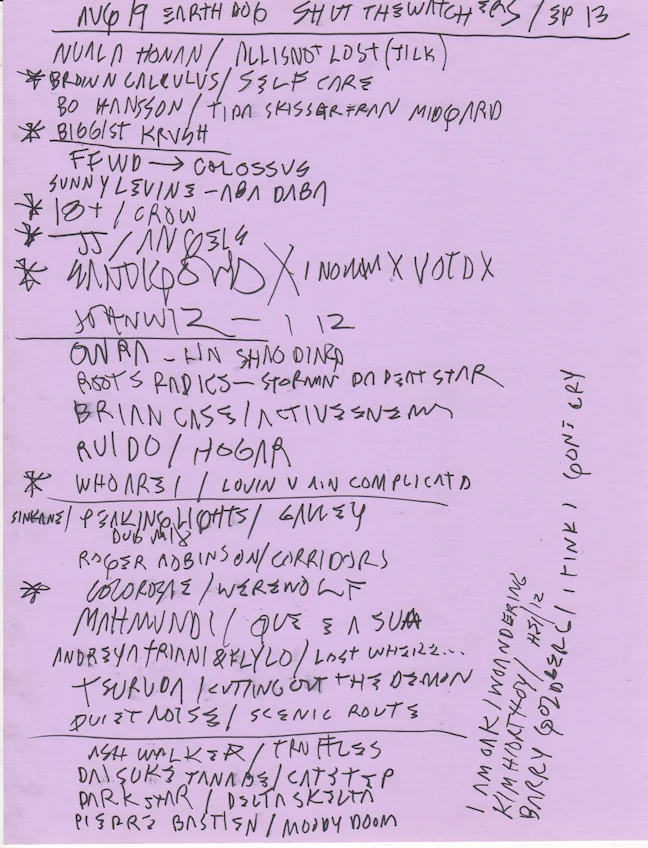 AUG 19 EARTH DOG SHUT THE WATCHERS / EP 13
NUALA HONAN / ALL IS NOT LOST (JILK)
* BROWN CALCULUS / SELF CARE
BO HANSSON / TIDA SKISSER FRAN MIDGARD
* BIGGIST KRUSH
FFWD → COLOSSUS
SUNNY LEVINE - ABA DABA
* 18+ / CROW
* JJ / ANGELS
* X X VOID X
- 1 12
OWRA - LIN SHAO DIARD
ROOTS RADICS - STORMIN DA DEAT STAR
BRIAN CASE / ACTIVE ENEMY
RUIDO / HOGAR
* WHO ARE I / LOVIN U AIN COMPLICATD
SINKANE / PEAKING LIGHTS / GALLEY
DUB MIX
ROGER ROBINSON / CORRIDORS
* COLOROBAE / WEREWOLF
MAHMUNDI / QUE E A SUA
ANDREYA TRIANI & FLYLO / LOST WHERE...
TSURUDA / CUTTING OUT THE DEMON
QUIET NOISE / SCENIC ROUTE
ASH WALKER / TRUFFLES
DAISUKE TANABE / CAT STEP
DARK STAR / DELTA SKELTA
PIERRE BASTIEN / MOODY DOOM
I AM OAK / WOANDERING
KIM HIORTHOY / HS/12
BARRY GOLDBERG / I TINK I GONE CRY